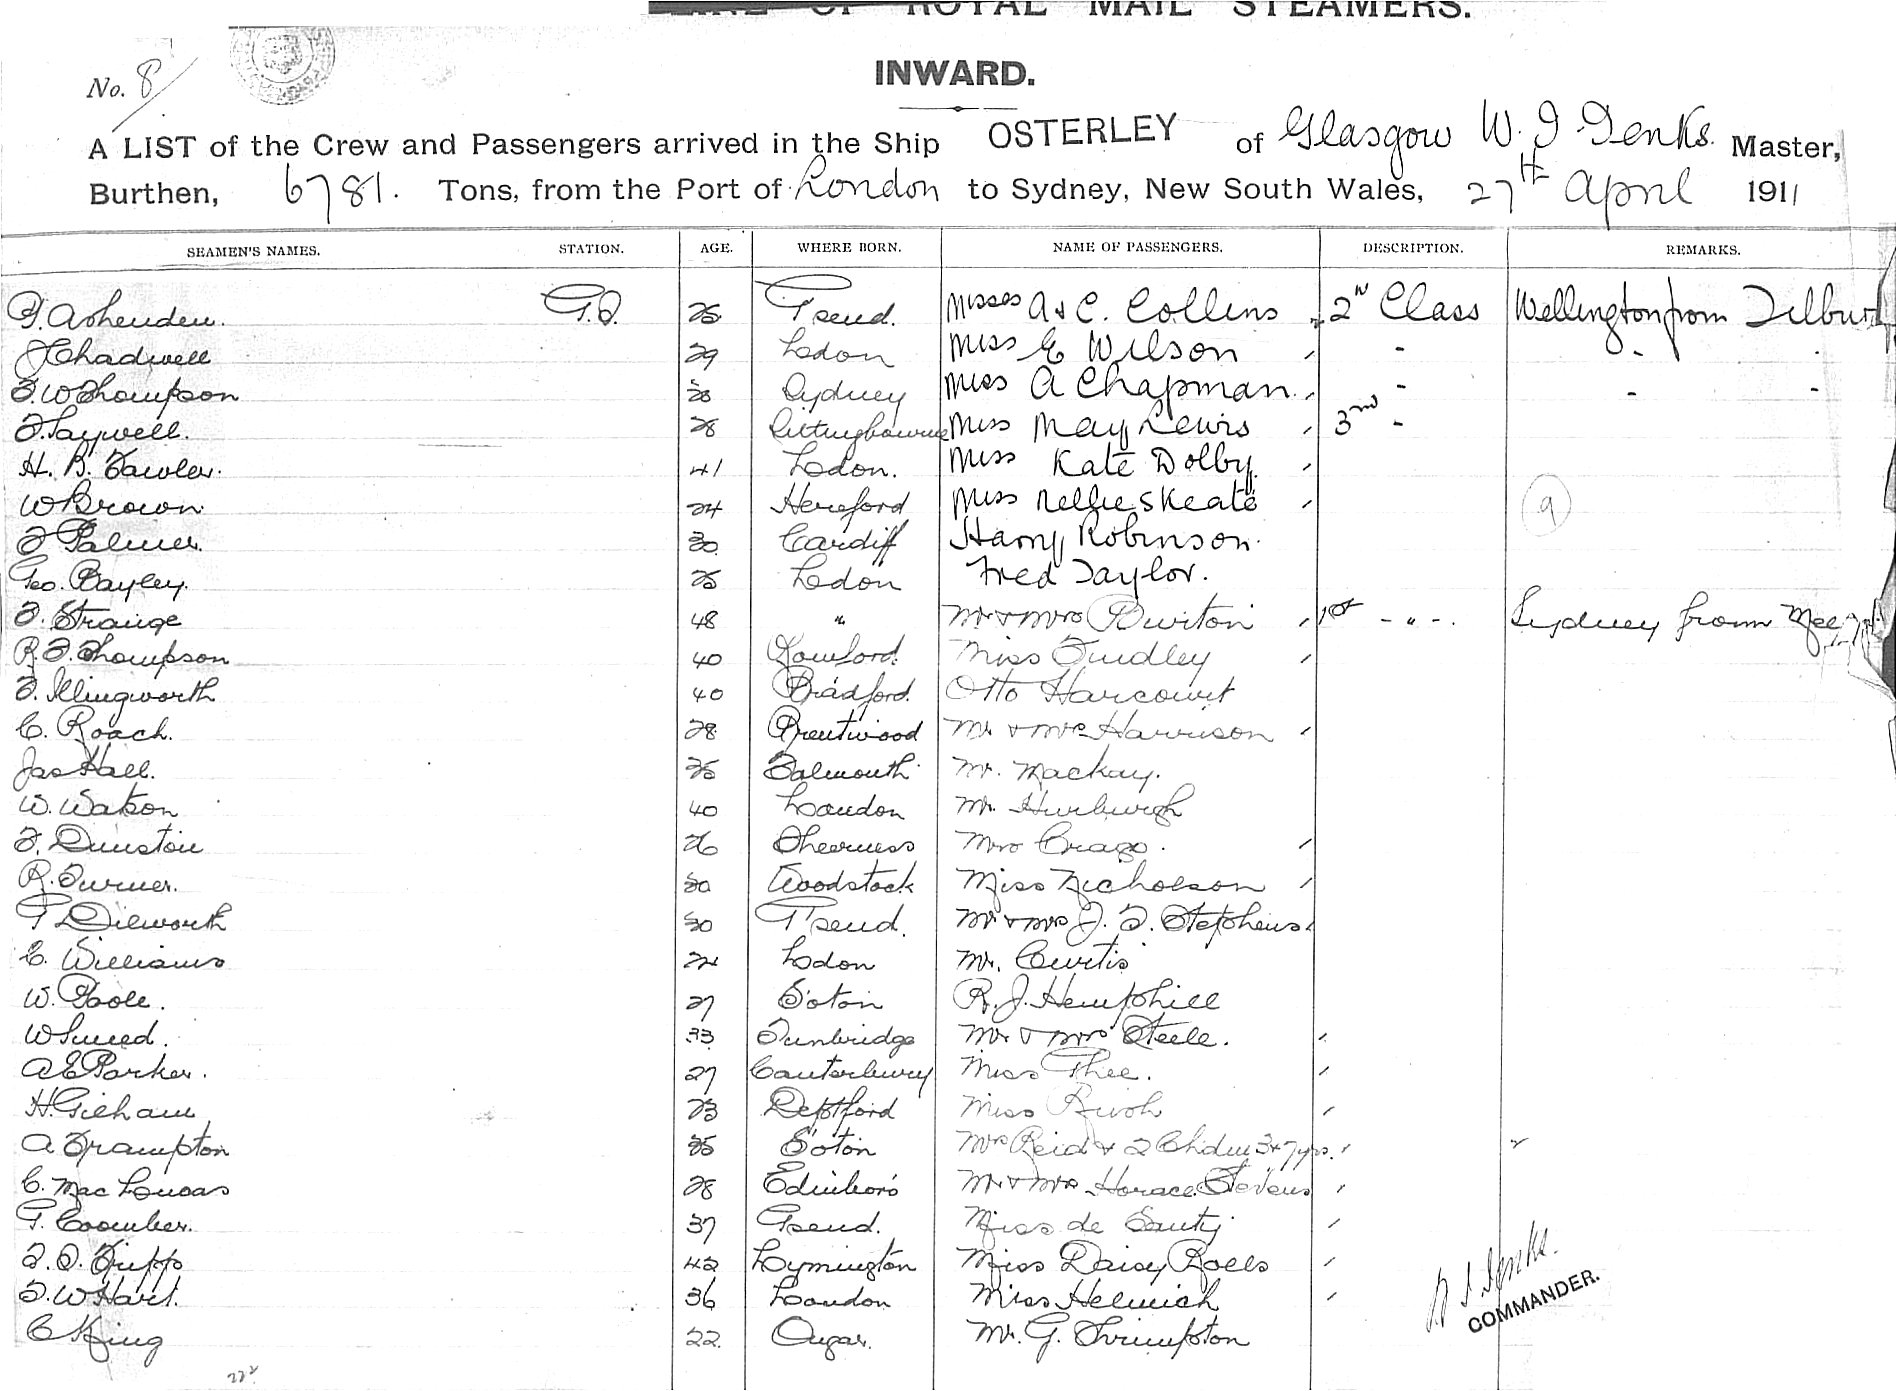 OF ROYAL MAIL STEAMERS.
No. 8
INWARD.
A LIST of the Crew and Passengers arrived in the Ship OSTERLEY of Glasgow W. J Jenks. Master,
Burthen, 6781. Tons, from the Port of London to Sydney, New South Wales, 27th April 1911
SEAMEN'S NAMES. STATION. AGE. WHERE BORN. NAME OF PASSENGERS. DESCRIPTION. REMARKS.
Ashenden. G.S. G'send. Misses A & C. Collins 2nd Class Wellington from Tilbury
Chadwell 29 Ldon Miss E Wilson - -
F. W Thompson Sydney Miss A Chapman - - -
F. Taywell. 28 Sittingbourne Miss May Lewis 3rd -
H. B. Fowler. 41 Ldon. Miss Kate Dolby
W Brown 24 Hereford Miss Nellie Skeate 9
F Palmer. 30 Cardiff Harry Robinson.
Geo. Bayley. Ldon Fred Taylor.
F. Strange 48 " Mr & Mrs Burton 1st - " - Sydney from
R. F. Thompson 40 Romford. Miss Findley
F. Illingworth 40 Bradford. Otto Harcourt
C. Roach. 28 Brentwood Mr & Mrs Harrison
Jas Hall. Falmouth Mr. Mackay.
W. Watson 40 London Mr. Hurburgh
F. Dunston 26 Sheerness Mrs Crago.
R. Turner. 30 Woodstock Miss Nicholson
G Dilworth 30 G'send. Mr & Mrs J. F. Stephens
C. Williams 24 Ldon Mr. Curtis
W. Poole. 27 S'oton R. J. Hemphill
W Sneed. 33 Tunbridge Mr & Mrs Steele.
A E Parker. 27 Canterbury Miss Thee.
H. Gilham 23 Deptford Miss
A Frampton 35 S'oton Mrs Reid & 2 Chdrn 3 & 7 yrs.
C. Mac Lucas 28 Edinboro' Mr & Mrs Horace Stevens
G. Coomber. 37 G'send. Miss de Santy
Fripp 42 Lymington Miss Daisy Rolls
F. W Hart. 36 London Miss Helmich
C King 22 Ongar. Mr. G. Trimpton
W J Jenks.
COMMANDER.
222